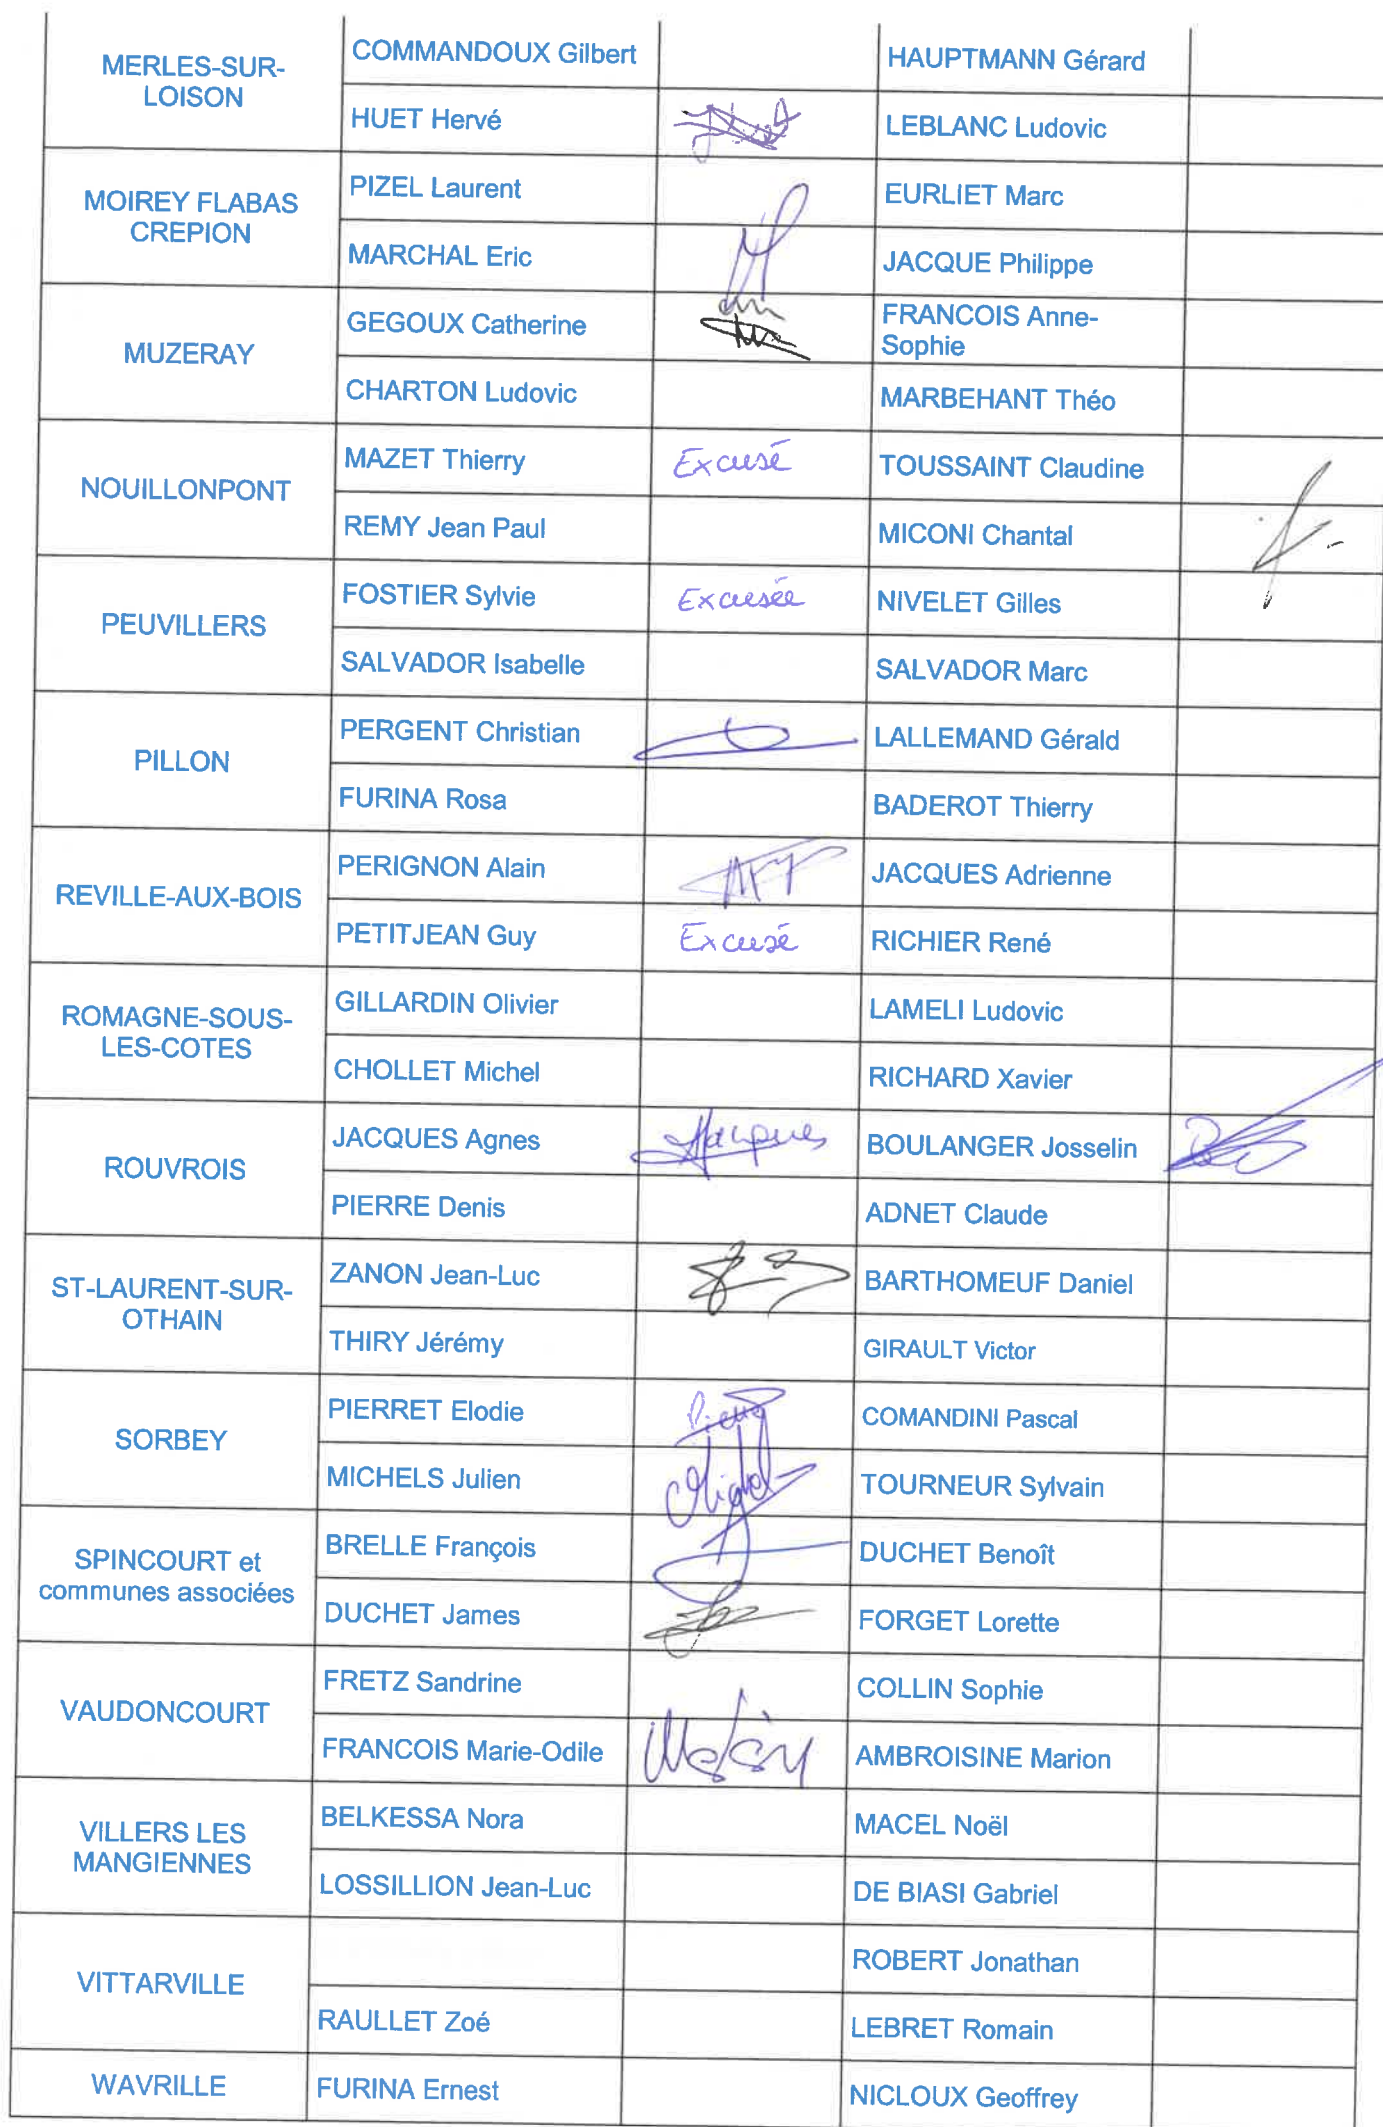 MERLES-SUR-
LOISON
COMMANDOUX Gilbert
HAUPTMANN Gérard
HUET Hervé
LEBLANC Ludovic
MOIREY FLABAS
CREPION
PIZEL Laurent
EURLIET Marc
MARCHAL Eric
JACQUE Philippe
MUZERAY
GEGOUX Catherine
FRANCOIS Anne-
Sophie
CHARTON Ludovic
MARBEHANT Théo
NOUILLONPONT
MAZET Thierry
Excusé
TOUSSAINT Claudine
REMY Jean Paul
MICONI Chantal
PEUVILLERS
FOSTIER Sylvie
Excusée
NIVELET Gilles
SALVADOR Isabelle
SALVADOR Marc
PILLON
PERGENT Christian
LALLEMAND Gérald
FURINA Rosa
BADEROT Thierry
REVILLE-AUX-BOIS
PERIGNON Alain
JACQUES Adrienne
PETITJEAN Guy
Excusé
RICHIER René
ROMAGNE-SOUS-
LES-COTES
GILLARDIN Olivier
LAMELI Ludovic
CHOLLET Michel
RICHARD Xavier
ROUVROIS
JACQUES Agnes
Jacques
BOULANGER Josselin
PIERRE Denis
ADNET Claude
ST-LAURENT-SUR-
OTHAIN
ZANON Jean-Luc
BARTHOMEUF Daniel
THIRY Jérémy
GIRAULT Victor
SORBEY
PIERRET Elodie
COMANDINI Pascal
MICHELS Julien
TOURNEUR Sylvain
SPINCOURT et
communes associées
BRELLE François
DUCHET Benoît
DUCHET James
FORGET Lorette
VAUDONCOURT
FRETZ Sandrine
COLLIN Sophie
FRANCOIS Marie-Odile
AMBROISINE Marion
VILLERS LES
MANGIENNES
BELKESSA Nora
MACEL Noël
LOSSILLION Jean-Luc
DE BIASI Gabriel
VITTARVILLE
ROBERT Jonathan
RAULLET Zoé
LEBRET Romain
WAVRILLE
FURINA Ernest
NICLOUX Geoffrey